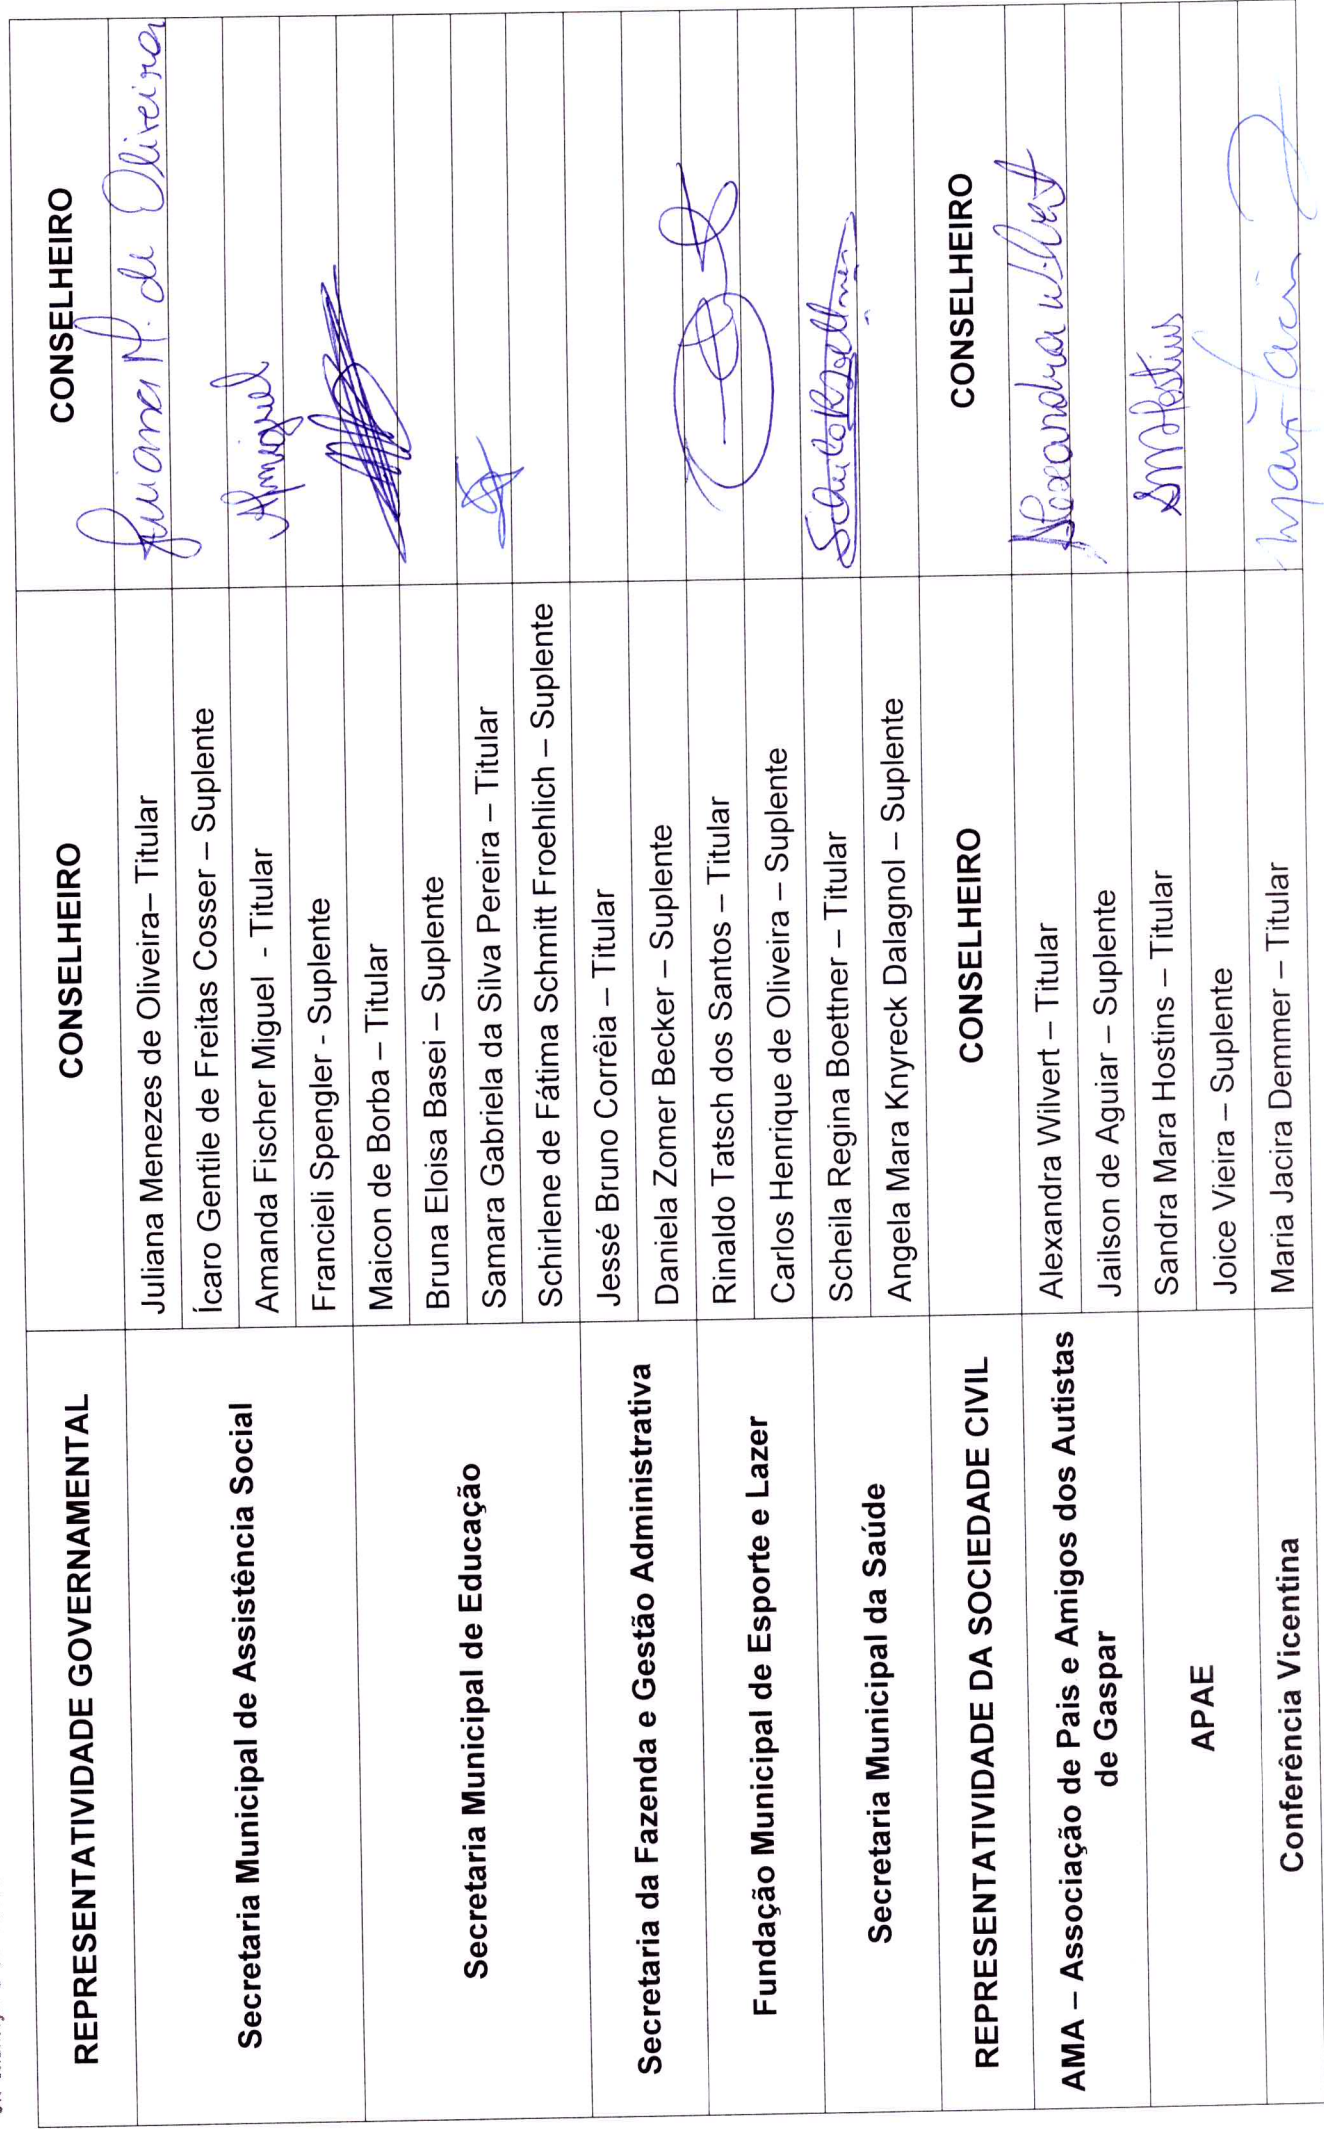 REPRESENTATIVIDADE GOVERNAMENTAL CONSELHEIRO CONSELHEIRO
Secretaria Municipal de Assistência Social
Juliana Menezes de Oliveira– Titular Juliana M. de Oliveira
Ícaro Gentile de Freitas Cosser – Suplente
Amanda Fischer Miguel - Titular AMiguel
Francieli Spengler - Suplente
Secretaria Municipal de Educação
Maicon de Borba – Titular
Bruna Eloisa Basei – Suplente
Samara Gabriela da Silva Pereira – Titular
Schirlene de Fátima Schmitt Froehlich – Suplente
Secretaria da Fazenda e Gestão Administrativa
Jessé Bruno Corrêia – Titular
Daniela Zomer Becker – Suplente
Fundação Municipal de Esporte e Lazer
Rinaldo Tatsch dos Santos – Titular
Carlos Henrique de Oliveira – Suplente
Secretaria Municipal da Saúde
Scheila Regina Boettner – Titular Scheila R Boettner
Angela Mara Knyreck Dalagnol – Suplente
REPRESENTATIVIDADE DA SOCIEDADE CIVIL CONSELHEIRO CONSELHEIRO
AMA – Associação de Pais e Amigos dos Autistas
de Gaspar
Alexandra Wilvert – Titular Alexandra Wilvert
Jailson de Aguiar – Suplente
APAE
Sandra Mara Hostins – Titular SMHostins
Joice Vieira – Suplente
Conferência Vicentina
Maria Jacira Demmer – Titular Maria Jaci